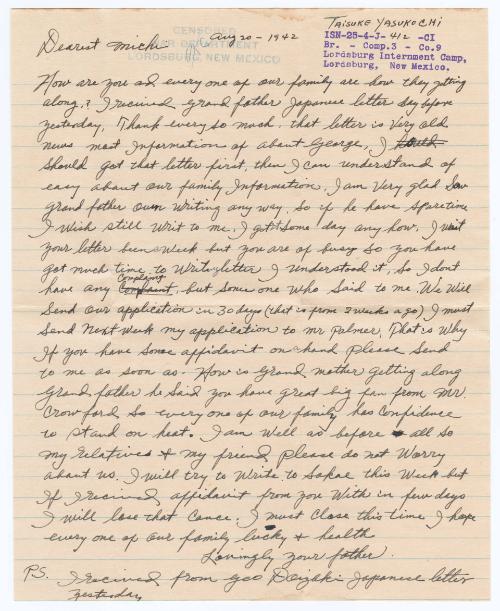 TAISUKE YASUKOCHI
ISN-25-4-J-412 -CI
Br. - Comp.3 - Co.9
Lordsburg Internment Camp,
Lordsburg, New Mexico.
CENSORED
WAR DEPARTMENT
LORDSBURG, NEW MEXICO
Aug 20 - 1942
Dearest Michi
How are you ad every one of our family are how they getting
along,? I received grand father Japanese letter day before
yesterday, Thank every so much. that letter is Very old
news most Information of about George, I
should got that letter first, then I can understand of
easy about our family Information, I am Very glad Saw
grand father own writing any way, so if he have sparetime
I wish still writ to me. I got some day any how. I wait
your letter been week but you are of busy so you have
got much time to Write letter I understood it, so I dont
have any Complaint, but some one who said to me We Will
send our application in 30 days (that is from 3 weeks ago) I must
send Next Week my application to mr Palmer, That is Why
If you have some affidavit on hand Please send
to me as soon as. How is grand mother getting along
grand father he said you have great big fan from Mr.
Crowford so every one of our family has Confidence
to stand on heat. I am Well as before all so
my relatives & my friend Please do not Worry
about us. I will try to Write to Sakae this Week but
If I received affidavit from you With in few days
I will lose that Cance. I must Close this time I hope
every one of our family lucky & health
Lovingly your father.
P.S. I received from geo Doizaki Japanese letter
yesterday